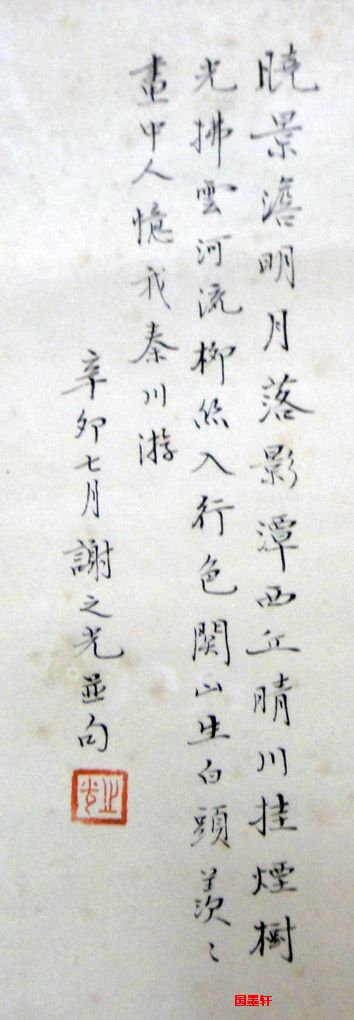 曉景澹明月落影潭西丘晴川挂煙樹
光拂雲河流柳絲入行色關山生白頭羨〻
畫中人憶我秦川游
辛卯七月謝之光並句
之光
国墨轩